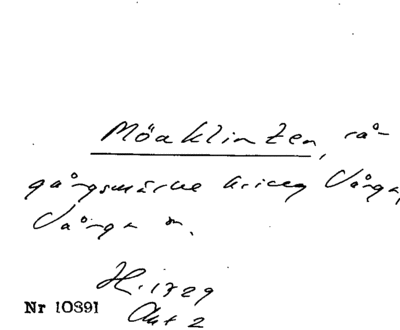 Möaklinten, rå-
gångsmärke kring Vånga,
Vånga sn.
H. 1729
Akt 2
Nr 10891